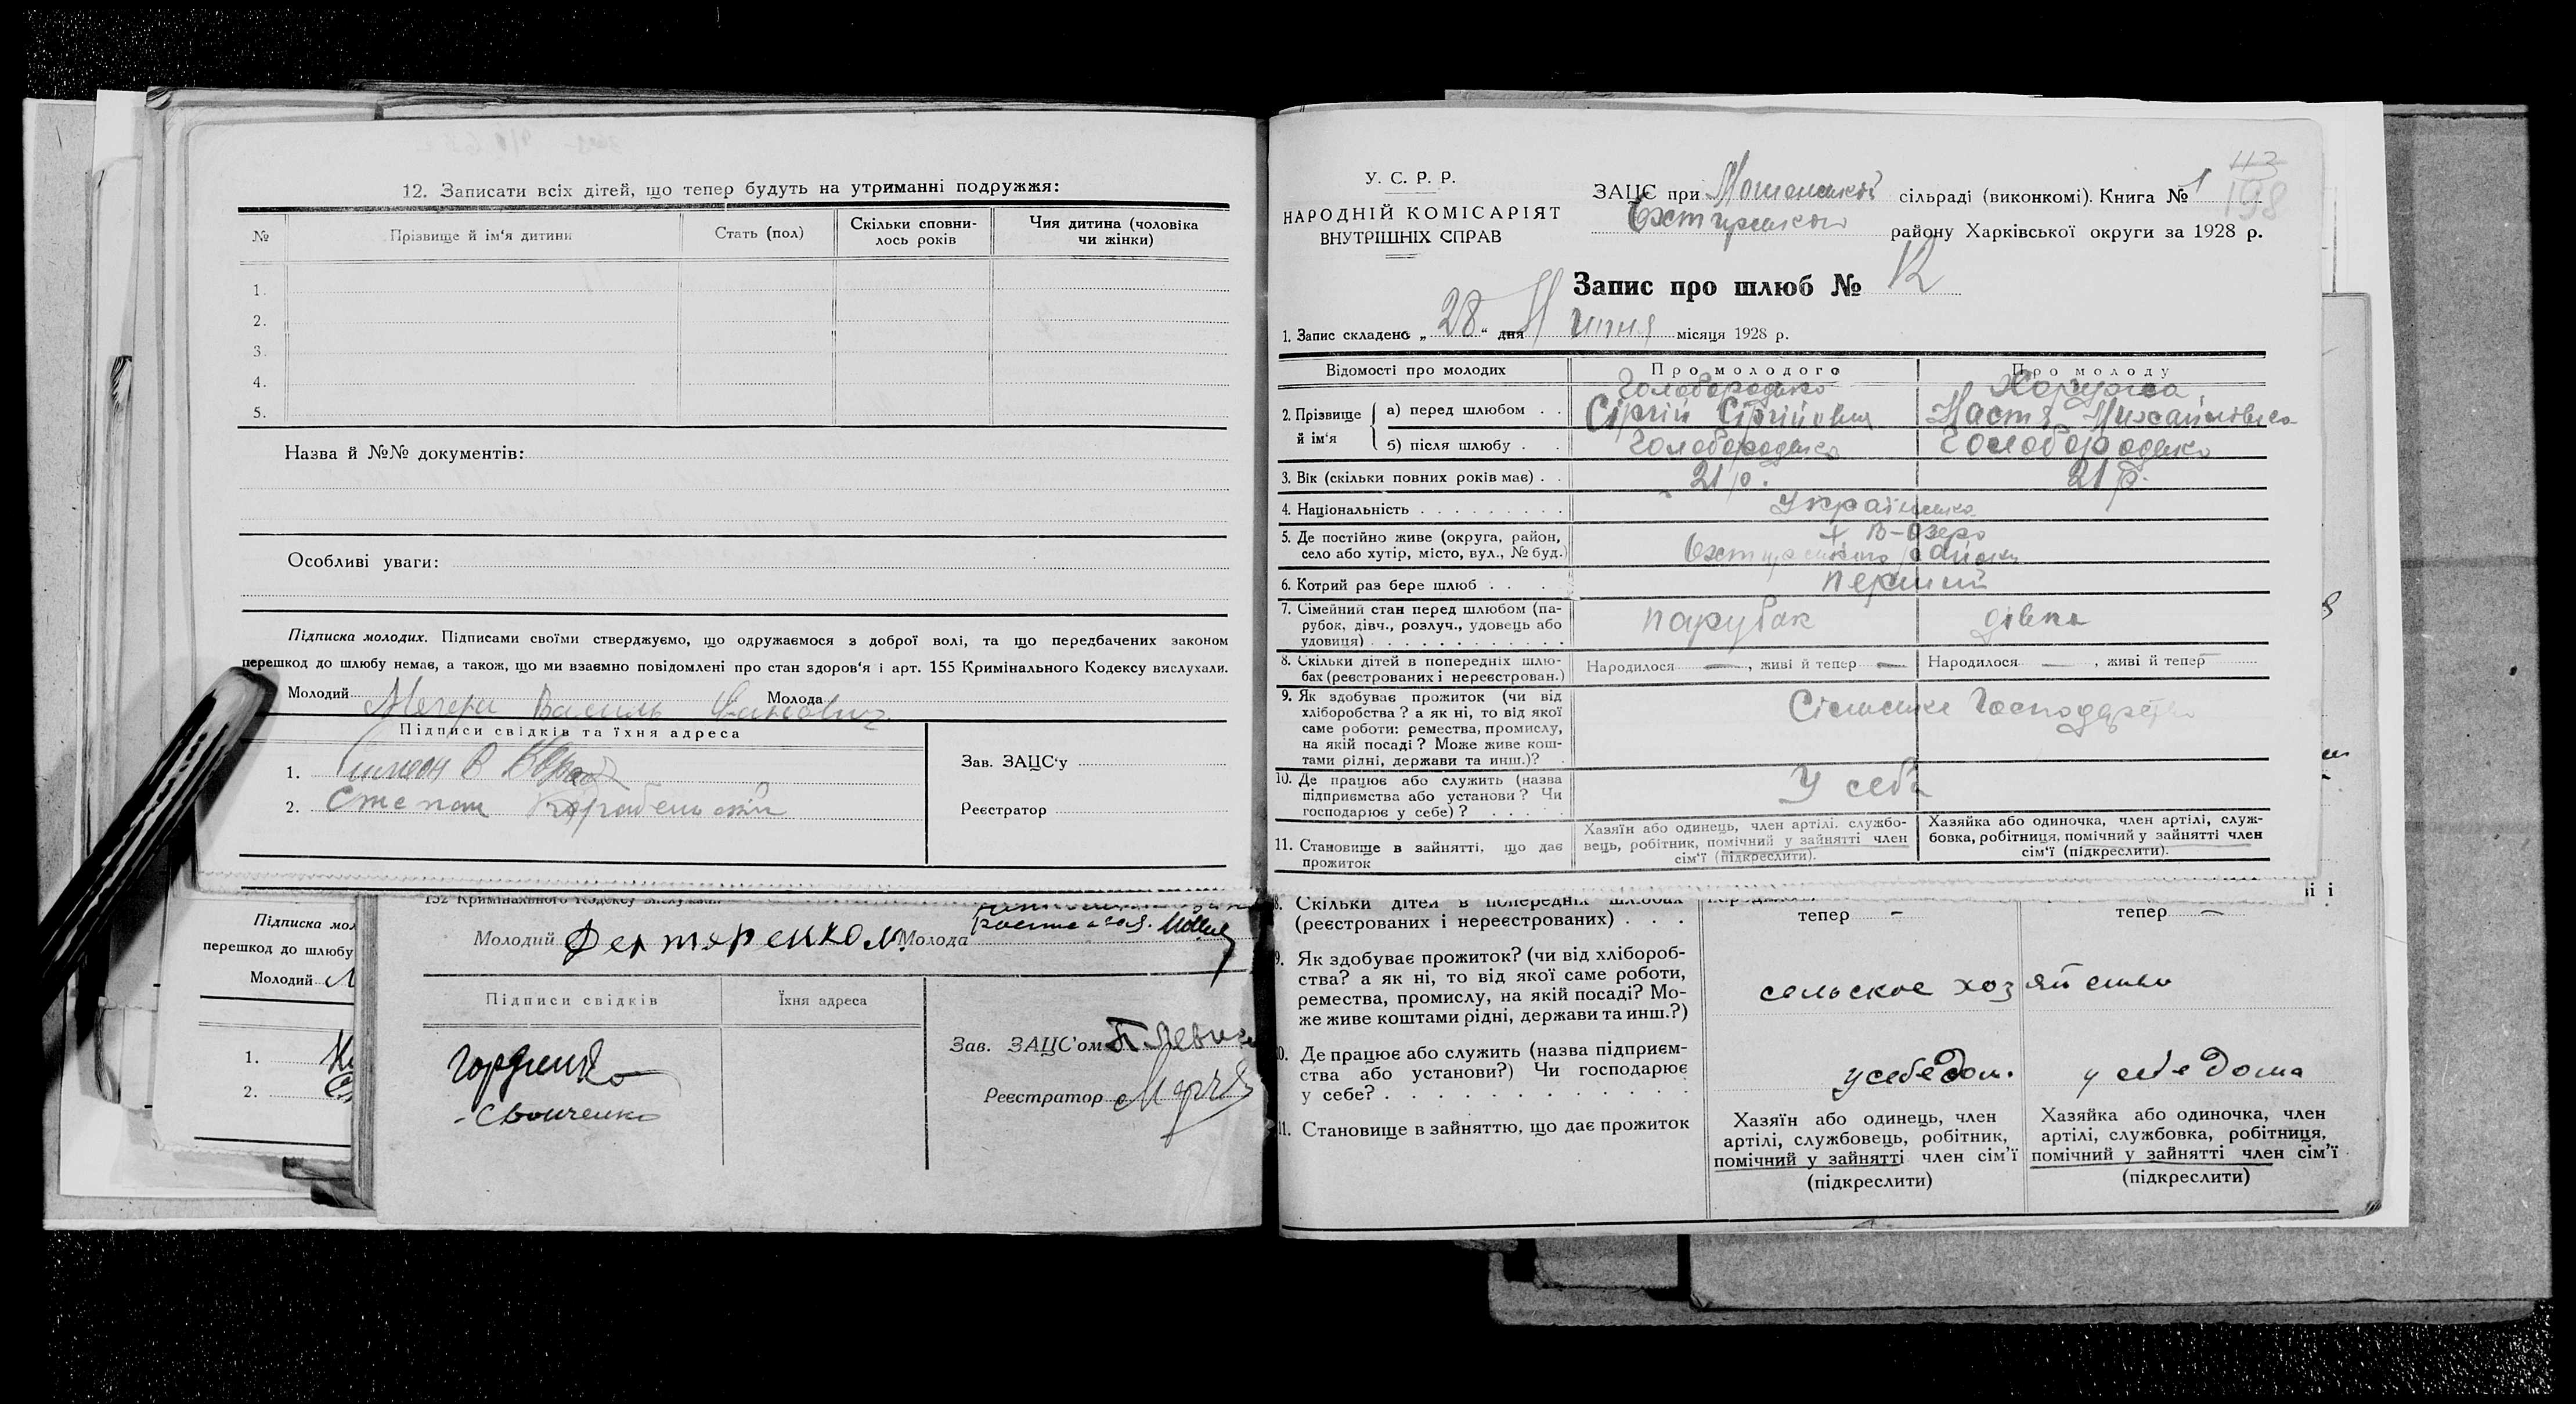 12. Записати всіх дітей, що тепер будуть на утриманні подружжя:
№ Прізвище й ім'я дитини Стать (пол) Скільки сповни-лось років Чия дитина (чоловіка чи жінки)
1.
2.
3.
4.
5.
Назва й №№ документів:
Особливі уваги:
Підписка молодих. Підписами своїми стверджуємо, що одружаємося з доброї волі, та що передбачених законом
перешкод до шлюбу немає, а також, що ми взаємно повідомлені про стан здоров'я і арт. 155 Кримінального Кодексу вислухали.
Молодий Василь Іванович Молода
Підписи свідків та їхня адреса
1.
2. Степан
Зав. ЗАЦС'у
Реєстратор
Підписка мол
перешкод до шлюбу
Молодий
1.
2.
132 Кримінального Кодексу вислухали.
Молодий Молода
Підписи свідків Їхня адреса
Гордиенко
Зав. ЗАЦС'ом
Реєстратор
У. С. Р. Р.
НАРОДНІЙ КОМІСАРІЯТ
ВНУТРІШНІХ СПРАВ
113
198
ЗАЦС при сільраді (виконкомі). Книга № 1
Охтирського району Харківської округи за 1928 р.
Запис про шлюб № 12
1. Запис складено „28“ дня місяця 1928 р.
Відомості про молодих Про молодого Про молоду
2. Прізвище й ім'я
а) перед шлюбом . . Голобородько Сіргій Сіргійович Настя Михайловна
б) після шлюбу . . Голобородько Голобородько
3. Вік (скільки повних років має) . . 21 р. 21 р.
4. Національність . . . . . . . . . Українська
5. Де постійно живе (округа, район,
село або хутір, місто, вул., № буд.) х. В-Озеро
Охтирського району
6. Котрий раз бере шлюб . . . . перший
7. Сімейний стан перед шлюбом (па-
рубок, дівч., розлуч., удовець або
удовиця) . . . . . . . . . . . . парубак дівка
8. Скільки дітей в попередніх шлю-
бах (реєстрованих і нереєстрован.) Народилося — , живі й тепер — Народилося — , живі й тепер
9. Як здобуває прожиток (чи від
хліборобства? а як ні, то від якої
саме роботи: ремества, промислу,
на якій посаді? Може живе кош-
тами рідні, держави та инш.)? Сільське Господарство
10. Де працює або служить (назва
підприємства або установи? Чи
господарює у себе)? . . . . . У себе
11. Становище в зайнятті, що дає
прожиток
Хазяїн або одинець, член артілі. службо-
вець, робітник, помічний у зайнятті член
сім'ї (підкреслити).
Хазяйка або одиночка, член артілі, служ-
бовка, робітниця, помічний у зайнятті член
сім'ї (підкреслити).
8. Скільки дітей в попередніх шлюбах
(реєстрованих і нереєстрованих) . . . тепер — тепер —
9. Як здобуває прожиток? (чи від хлібороб-
ства? а як ні, то від якої саме роботи,
ремества, промислу, на якій посаді? Мо-
же живе коштами рідні, держави та инш.?) сельское хозяйство
10. Де працює або служить (назва підприєм-
ства або установи?) Чи господарює
у себе? . . . . . . . . . . . . . у себе дом. у себе дома
11. Становище в зайняттю, що дає прожиток
Хазяїн або одинець, член
артілі, службовець, робітник,
помічний у зайнятті член сім'ї
(підкреслити)
Хазяйка або одиночка, член
артілі, службовка, робітниця,
помічний у зайнятті член сім'ї
(підкреслити)